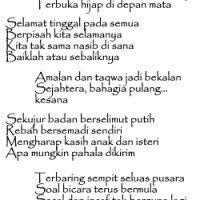 Terbuka hijap di depan mata
Selamat tinggal pada semua
Berpisah kita selamanya
Kita tak sama nasib di sana
Baiklah atau sebaliknya
Amalan dan taqwa jadi bekalan
Sejahtera, bahagia pulang...
kesana
Sekujur badan berselimut putih
Rebah bersemadi sendiri
Mengharap kasih anak dan isteri
Apa mungkin pahala dikirim
Terbaring sempit seluas pusara
Soal bicara terus bermula